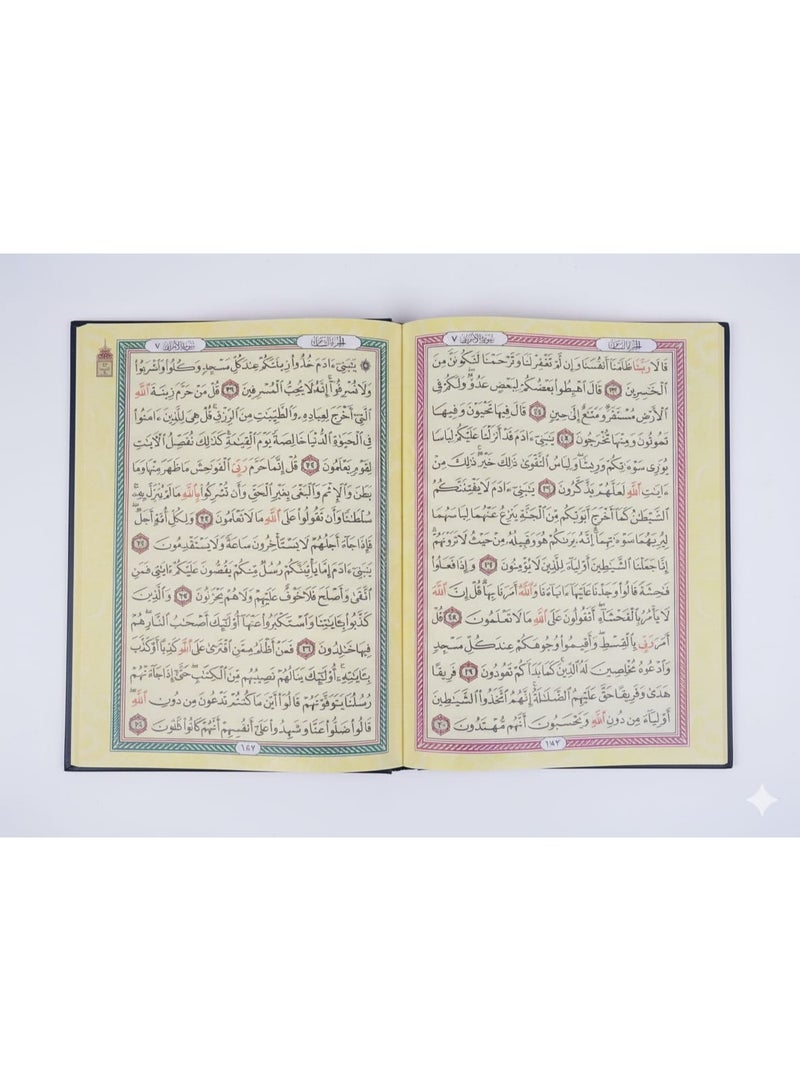 الجزء الثامن سورة الأعراف ٧
قالا ربنا ظلمنا أنفسنا وإن لم تغفر لنا وترحمنا لنكونن من
الخسرين قال اهبطوا بعضكم لبعض عدو ولكم فى
الأرض مستقر ومتع إلى حين قال فيها تحيون وفيها
تموتون ومنها تخرجون يبنى ءادم قد أنزلنا عليكم لباسا
يورى سوءتكم وريشا ولباس التقوى ذلك خير ذلك من
ءايت الله لعلهم يذكرون ٢٦ يبنى ءادم لا يفتننكم
الشيطن كما أخرج أبويكم من الجنة ينزع عنهما لباسهما
ليريهما سوءتهما إنه يرىكم هو وقبيله من حيث لا ترونهم
إنا جعلنا الشيطين أولياء للذين لا يؤمنون وإذا فعلوا
فحشة قالوا وجدنا عليها ءاباءنا والله أمرنا بها قل إن الله
لا يأمر بالفحشاء أتقولون على الله ما لا تعلمون ٢٨ قل
أمر ربى بالقسط وأقيموا وجوهكم عند كل مسجد
وادعوه مخلصين له الذين كما بدأكم تعودون ٢٩ فريقا
هدى وفريقا حق عليهم الضللة إنهم اتخذوا الشيطين
أولياء من دون الله ويحسبون أنهم مهتدون ٣٠
الجزء الثامن سورة الأعراف ٧
يبنى ءادم خذوا زينتكم عند كل مسجد وكلوا واشربوا
ولا تسرفوا إنه لا يحب المسرفين قل من حرم زينة الله
التى أخرج لعباده والطيبت من الرزق قل هى للذين ءامنوا
فى الحيوة الدنيا خالصة يوم القيمة كذلك نفصل الأيت
لقوم يعلمون قل إنما حرم ربى الفوحش ما ظهر منها وما
بطن والإثم والبغى بغير الحق وأن تشركوا بالله ما لم ينزل به
سلطنا وأن تقولوا على الله ما لا تعلمون ولكل أمة أجل
فإذا جاء أجلهم لا يستأخرون ساعة ولا يستقدمون
يبنى ءادم إما يأتينكم رسل منكم يقصون عليكم ءايتى فمن
اتقى وأصلح فلا خوف عليهم ولا هم يحزنون والذين
كذبوا بـايتنا واستكبروا عنها أولئك أصحب النار هم
فيها خلدون ٣٦ فمن أظلم ممن افترى على الله كذبا أو كذب
بـايته أولئك ينالهم نصيبهم من الكتب حتى إذا جاءتهم
رسلنا يتوفونهم قالوا أين ما كنتم تدعون من دون الله
قالوا ضلوا عنا وشهدوا على أنفسهم أنهم كانوا
١٦٧